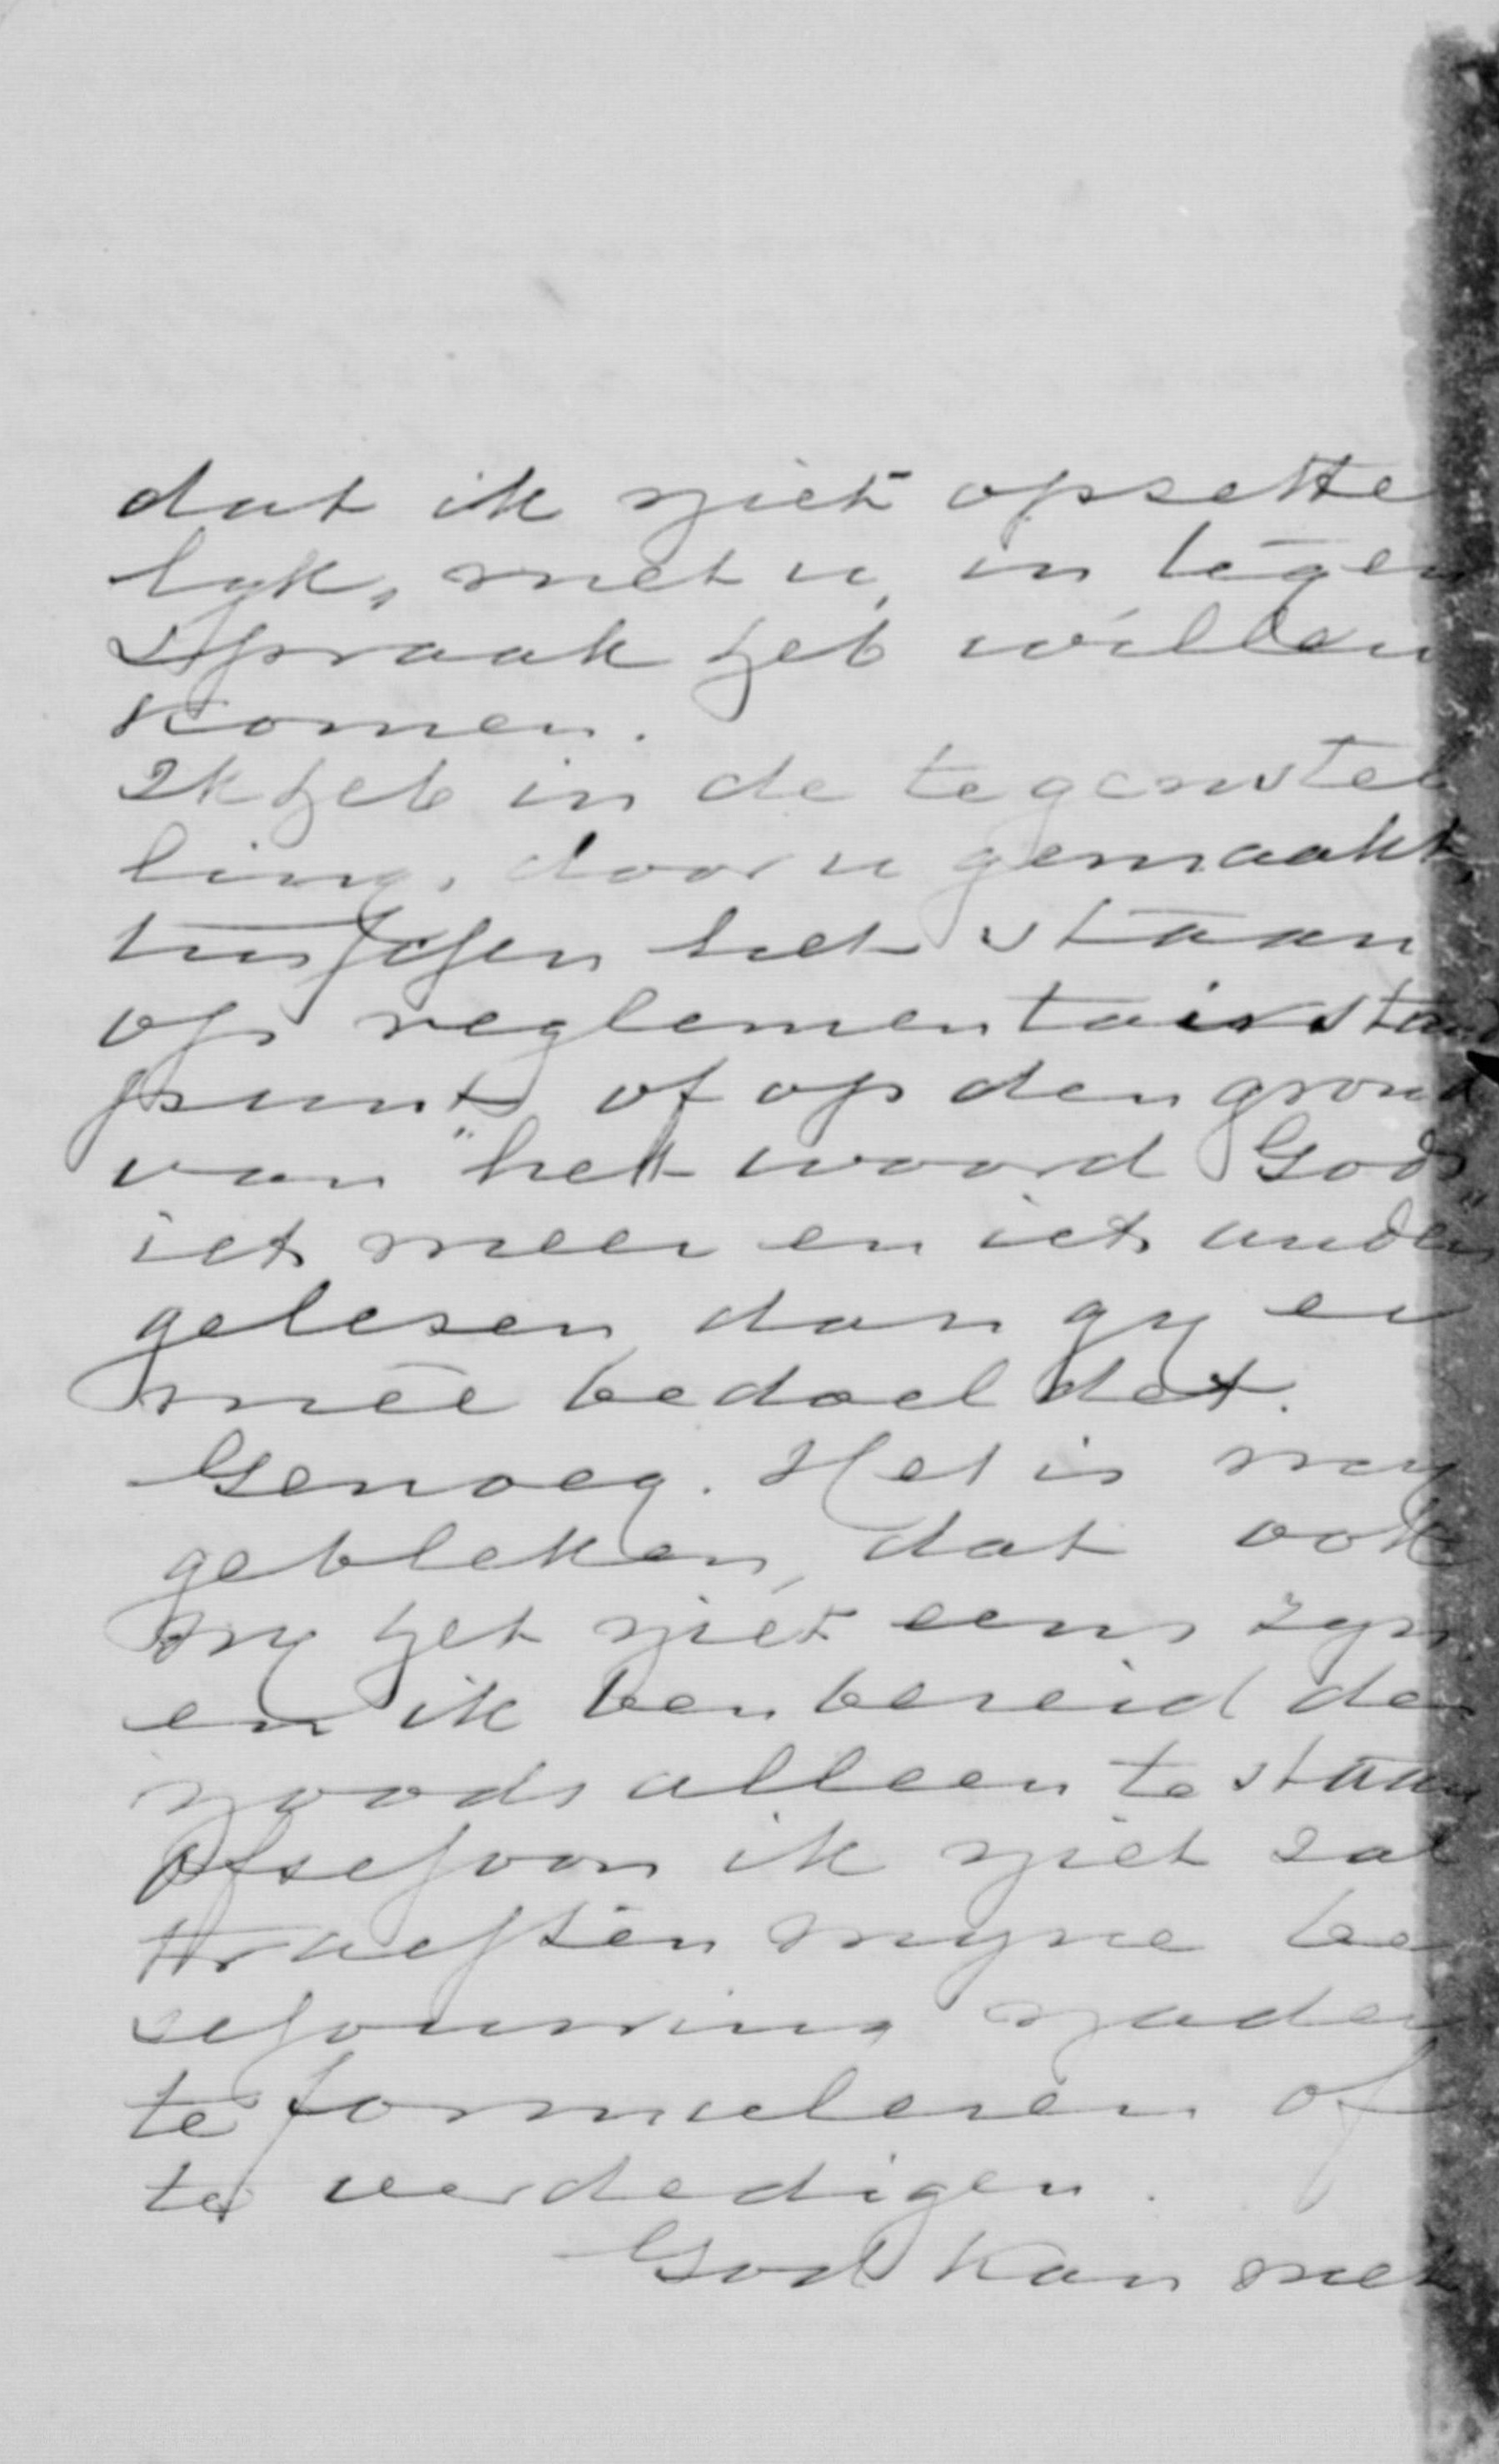 dat ik niet opzette
lyk, met u, in tegen
spraak heb willen
komen.
Ik heb in de tegenstel
ling, door u gemaakt,
tusschen het staan
op reglementair stand
punt of op den grond
van "het woord Gods"
iets meer en iets anders
gelezen dan gy er
mee bedoeldet.
Genoeg. Het is my
gebleken, dat ook
wy het niet eens zyn
en ik ben bereid des
noods alleen te staan
ofschoon ik niet zal
trachten myne be
schouwing nader
te formuleren of
te verdedigen.
God kan met